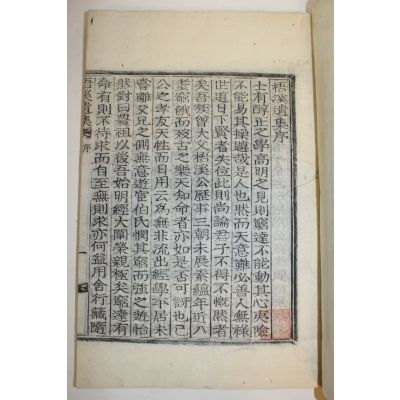 梧溪遺集序
士有醇正之學高明之見則窮達不能動其心夷險
不能易其操蹇哉是人也然而天意難必善人無祿
世道日下賢者失位此則尙論君子不得不慨然者
矣吾族曾大父梧溪公歷事三朝未展素蘊年近八
耋窮餓而歿古之樂天知命者亦如是否可訝也已
公之孝友天性而日用云爲無非流出經學平居未
嘗離父兄之側無意遊宦伯氏憫其窮而强之遊怡
然對曰農祖以後吾始明經大闡榮親極矣窮達有
命有則不待求而自至無則求亦何益用舍行藏隨
梧溪遺集 序 一